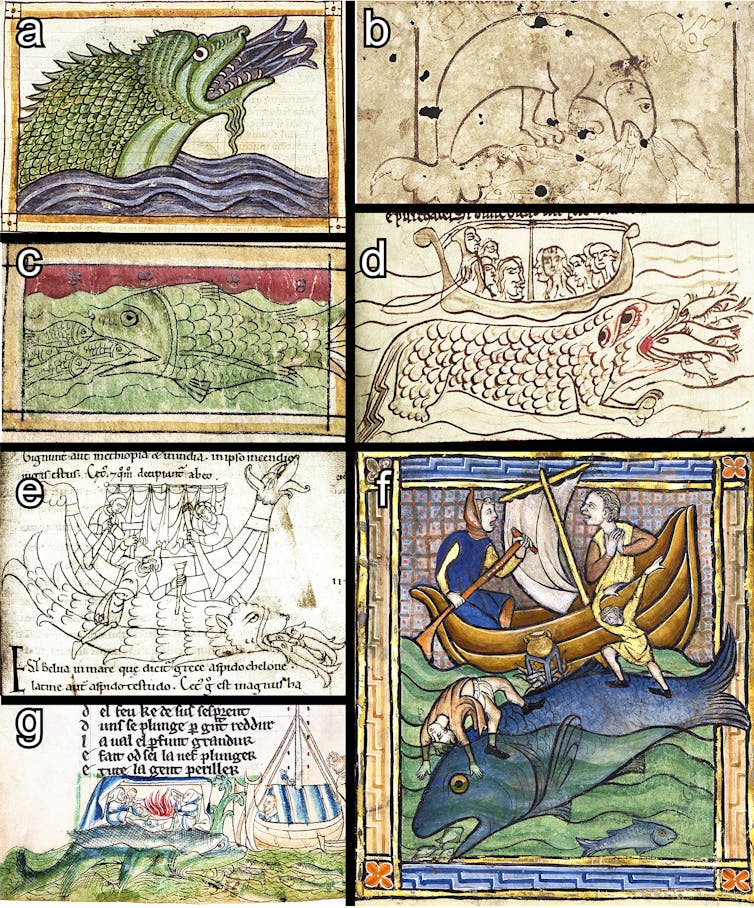 a
b
c
d
e
gignunt aut inethiopia & inindia. in ipso incendio
estus.
EST Belua in mare que dicit grece aspido chelone
latine aut aspido testudo. est magnus ha
f
g
d el feu ke de sus sesprent
d unc se plunge p grt reddur
l a ual el pfunt grandur
e fait od sei la nef plunger
e tute la gent periller